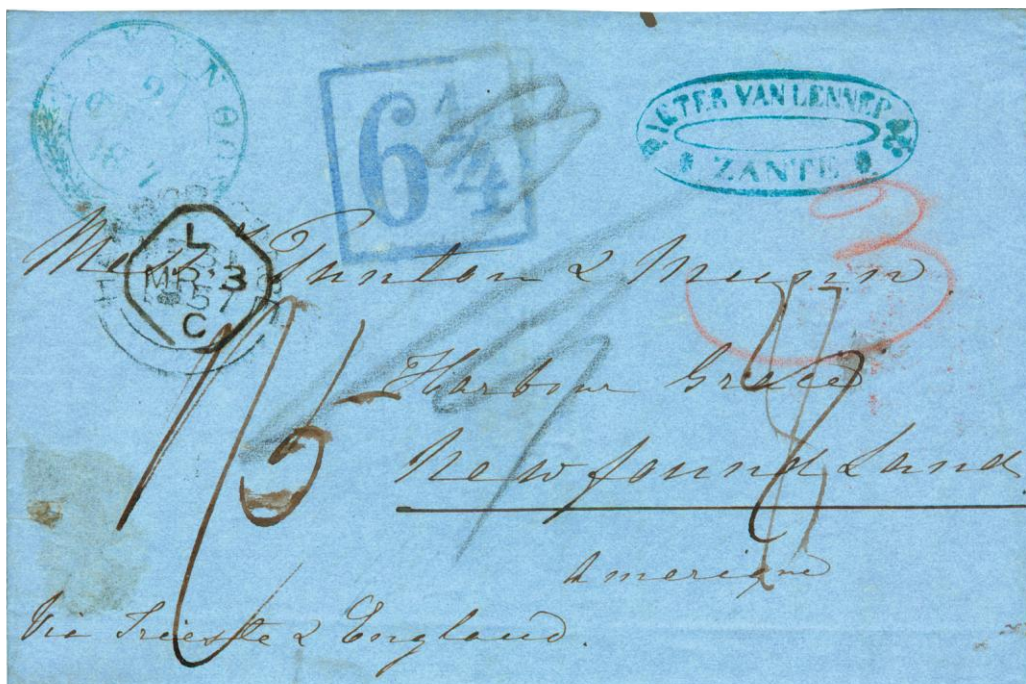 6 1/4
PIETER VAN LENNEP
ZANTE
L
MR 3
57
C
3
Mess.rs Punton & Munn
Harbour Grace
Newfoundland
Amerique
Via Trieste & England.